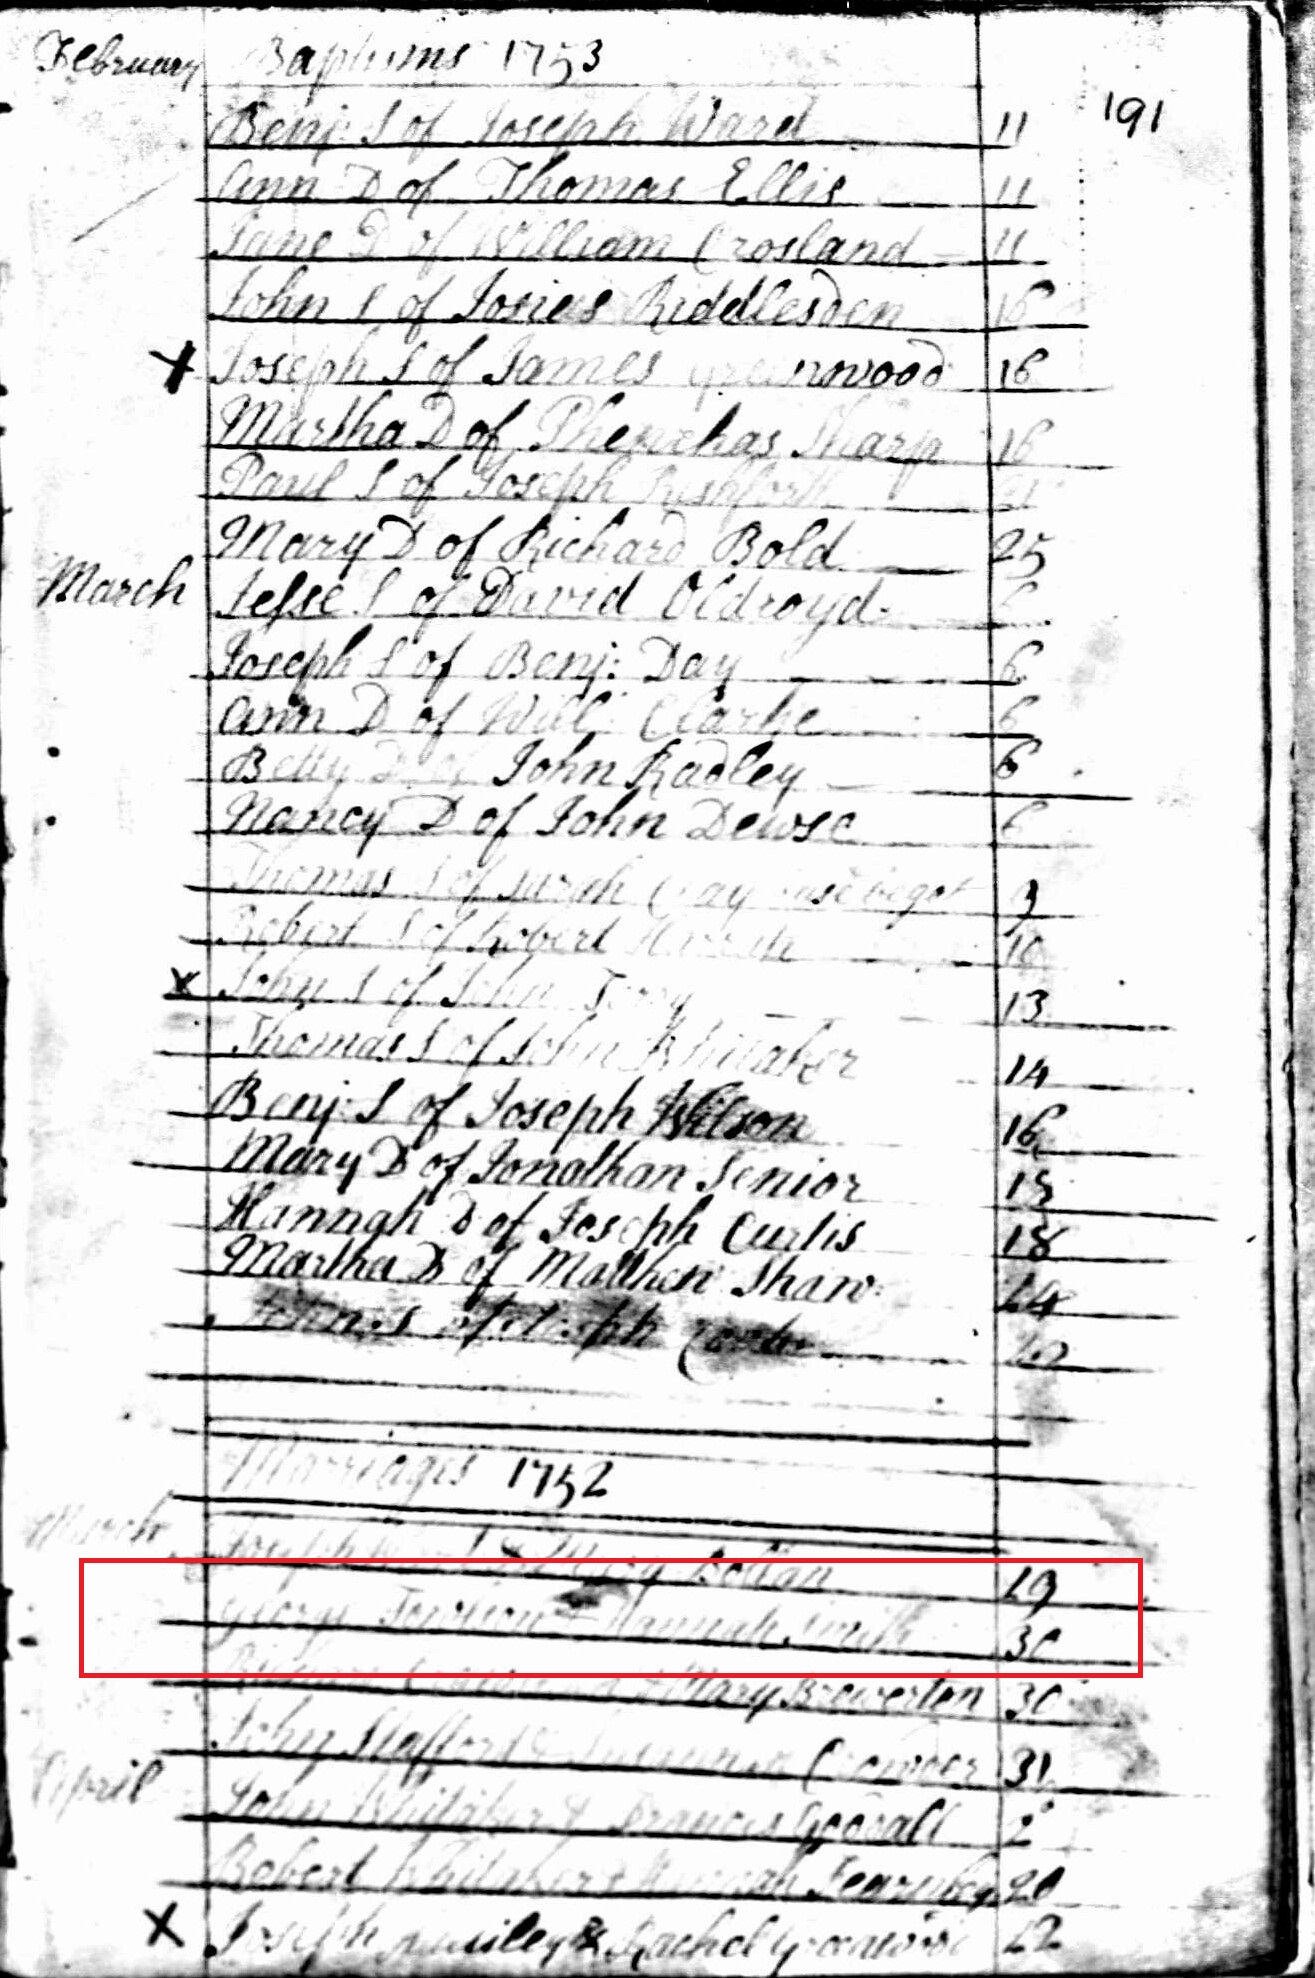 February Baptisms 1753
191
Benj: S of Joseph Ward 11
Ann D of Thomas Ellis 11
Jane D of William Crosland 11
John S of Josias Riddlesden 16
X Joseph S of James greenwood 16
Martha D of Phenehas Sharp 16
Paul S of Joseph Rushforth 21
Mary D of Richard Bold 25
March Jesse S of David Oldroyd 6
Joseph S of Benj: Day 6
Ann D of Will: Clarke 6
Betty D of John Radley 6
Nancy D of John Dewse 6
Thomas S of Sarah 9
Robert S of Robert 10
X John S of John Terry 13
Thomas S of John Whitaker 14
Benj: S of Joseph Wilson 16
Mary D of Jonathan Senior 18
Hannah D of Joseph Curtis 18
Martha D of Matthew Shaw 24
John S of Joseph
Marriages 1752
March Joseph & Mary 29
George & Hannah Smith 30
& Mary Brewerton 30
John Stafford & Susanna Crowder 31
April John Whitaker & Francis Goodall 2
Robert Whitaker & Hannah 20
X Joseph & Rachel greenwood 22